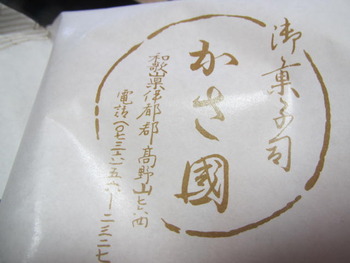 御菓子司
かさ國
和歌山県伊都郡高野山
電話(〇七三六)五六―二三二七